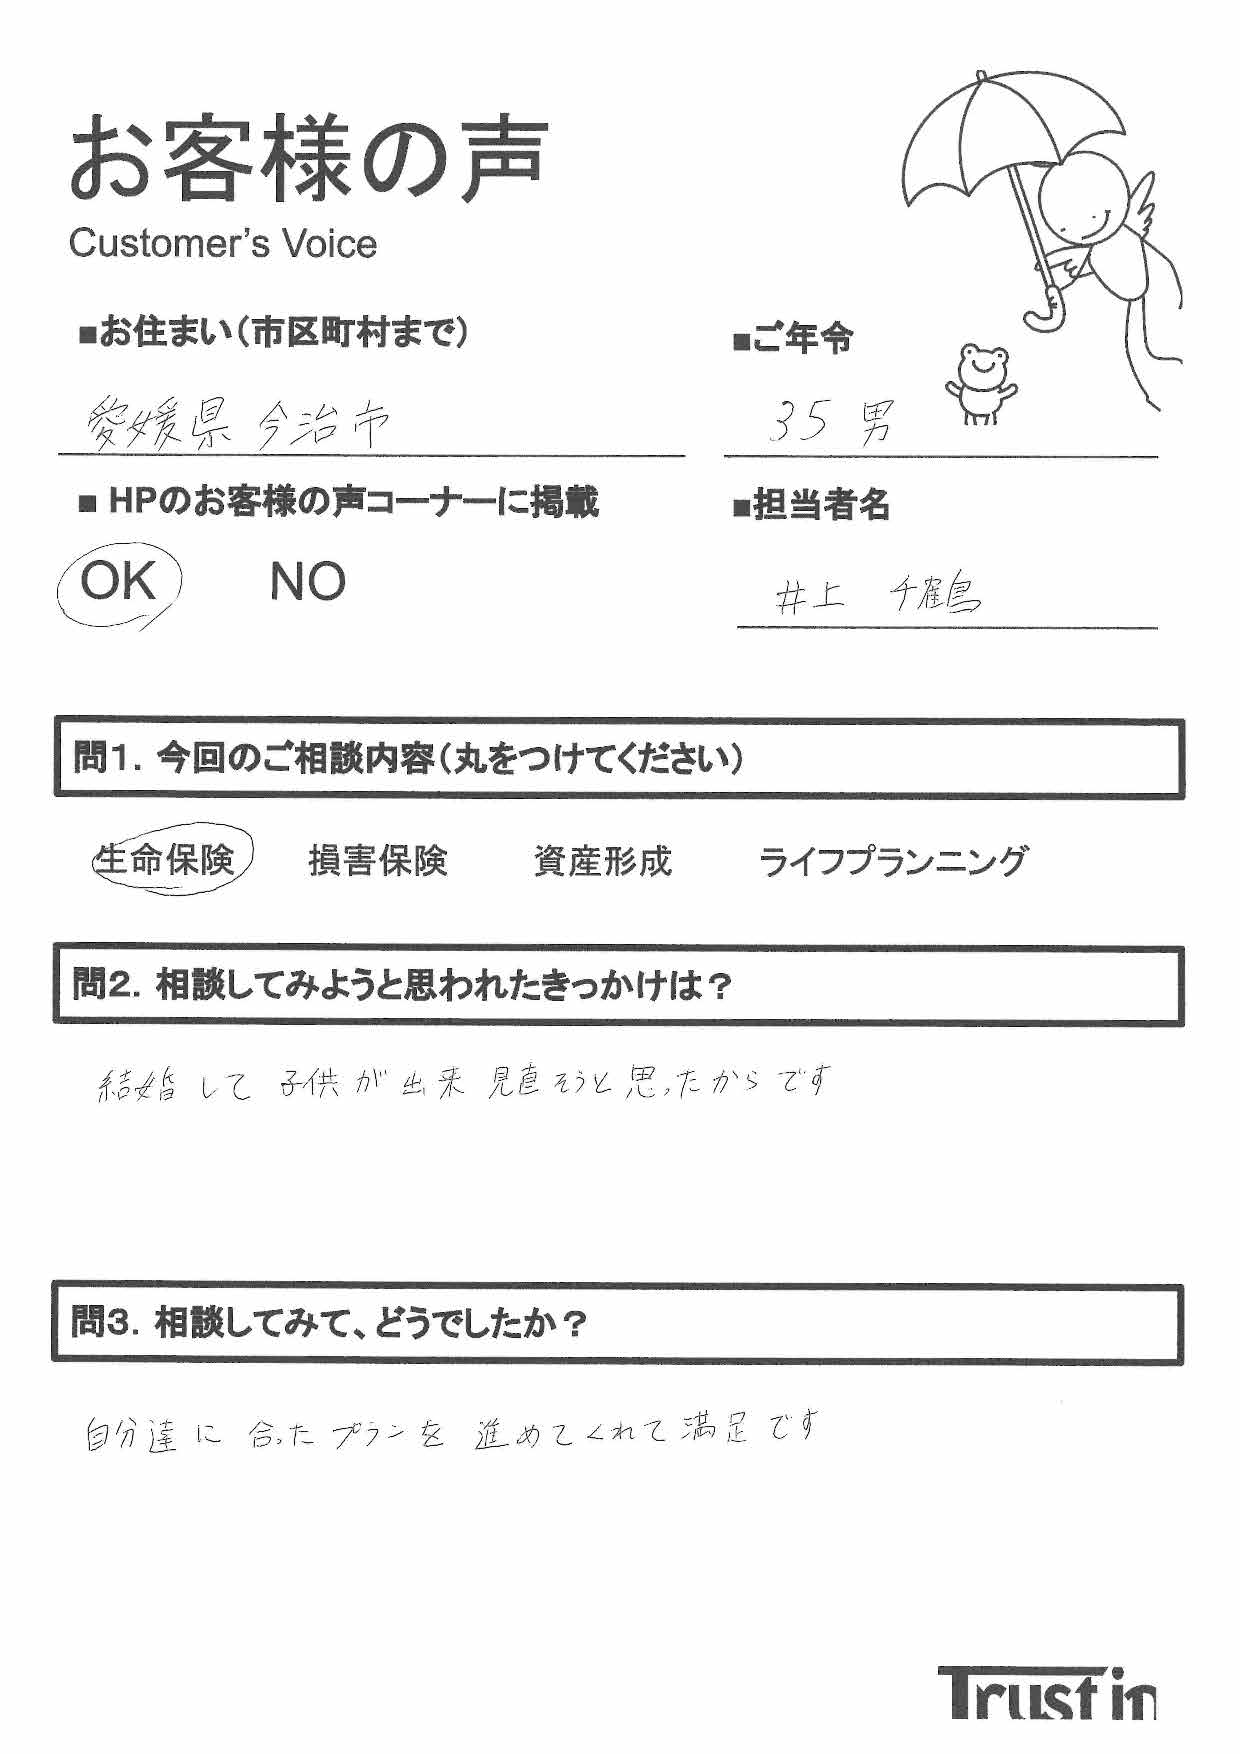 お客様の声
Customer's Voice
■お住まい(市区町村まで)
■ご年令
愛媛県 今治市
35 男
■ HPのお客様の声コーナーに掲載
■担当者名
OK NO
井上 千鶴
問1. 今回のご相談内容(丸をつけてください)
生命保険 損害保険 資産形成 ライフプランニング
問2. 相談してみようと思われたきっかけは?
結婚して 子供が出来 見直そうと思ったからです
問3. 相談してみて、どうでしたか?
自分達に 合ったプランを 進めてくれて満足です
Trust in